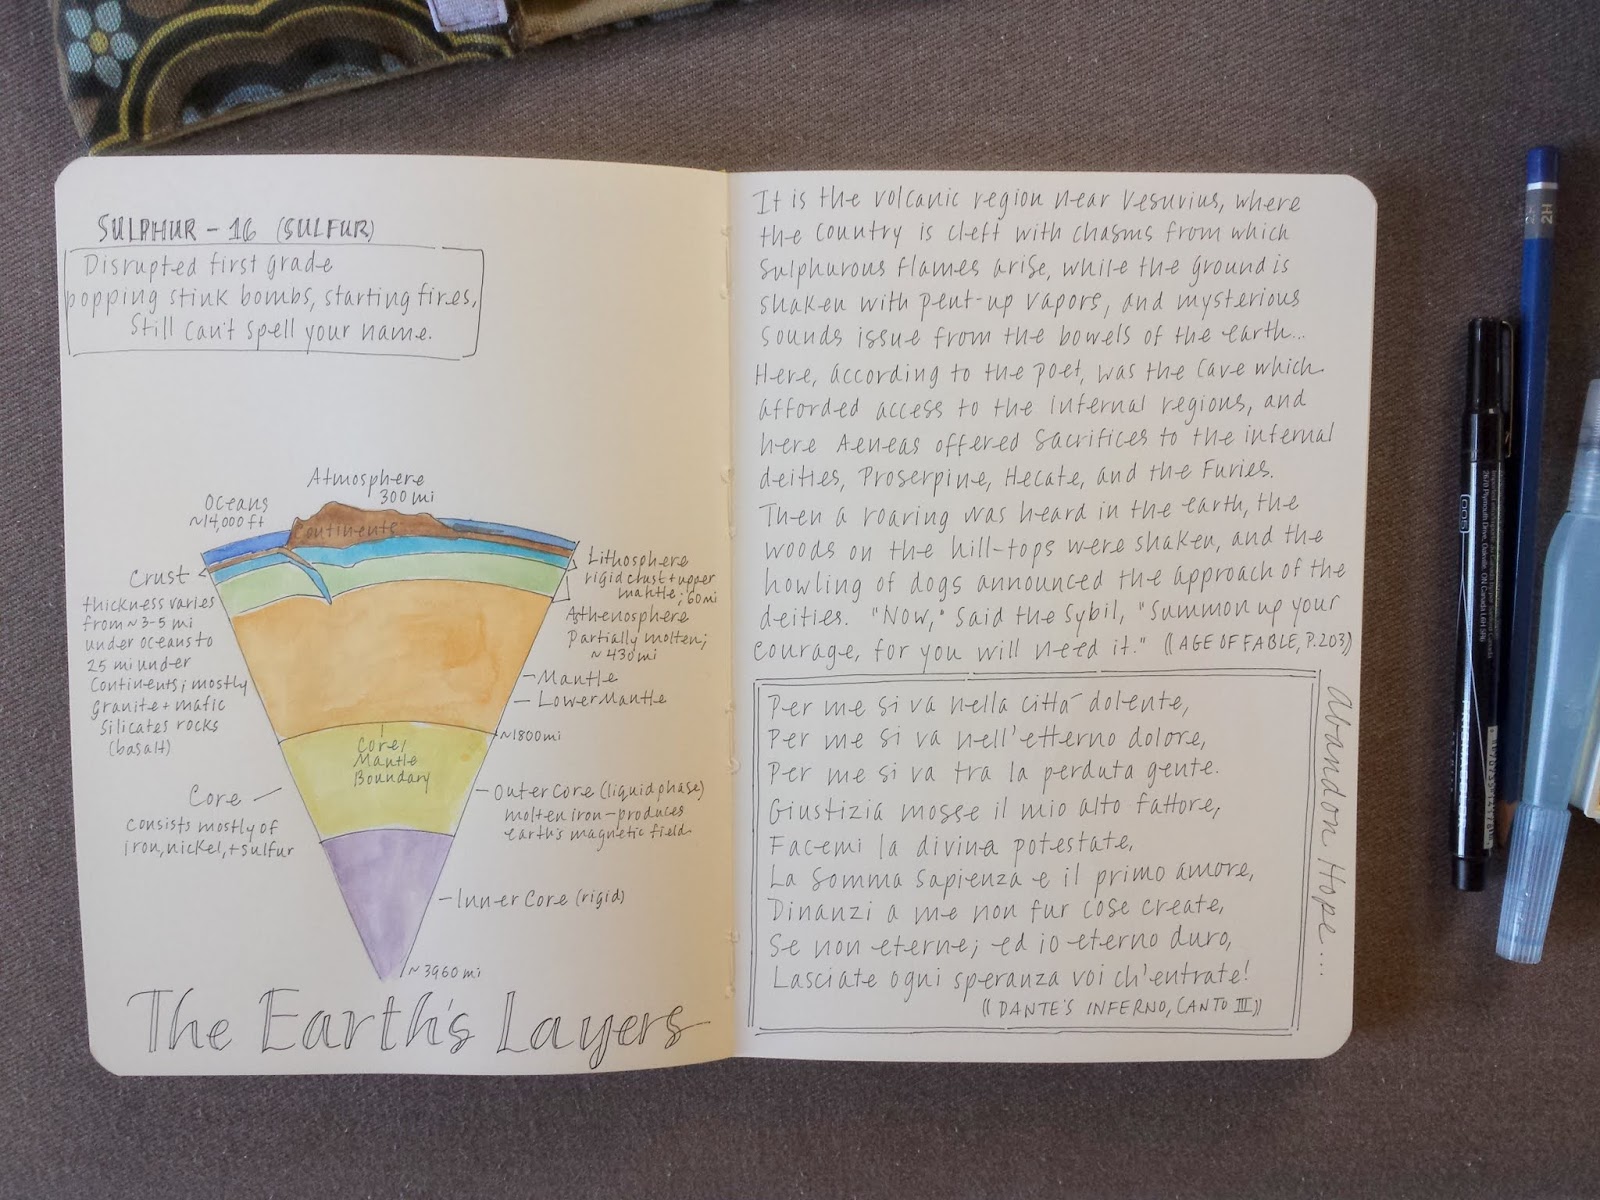 SULPHUR - 16 (SULFUR)
Disrupted first grade
popping stink bombs, starting fires,
Still can't spell your name.
Atmosphere
300 mi
Oceans
~14,000 ft
Continents
Crust
thickness varies
from ~3-5 mi
under oceans to
25 mi under
continents; mostly
granite + mafic
silicates rocks
(basalt)
Lithosphere
rigid crust + upper
mantle; 60mi
Asthenosphere
Partially molten;
~430mi
Mantle
Lower Mantle
~1800mi
Core/
Mantle
Boundary
Core
consists mostly of
iron, nickel, + sulfur
Outer Core (liquid phase)
molten iron - produces
earth's magnetic field
Inner Core (rigid)
~3960 mi
The Earth's Layers
It is the volcanic region near Vesuvius, where
the country is cleft with chasms from which
sulphurous flames arise, while the ground is
shaken with pent-up vapors, and mysterious
sounds issue from the bowels of the earth...
Here, according to the poet, was the cave which
afforded access to the infernal regions, and
here Aeneas offered sacrifices to the infernal
deities, Proserpine, Hecate, and the Furies.
Then a roaring was heard in the earth, the
woods on the hill-tops were shaken, and the
howling of dogs announced the approach of the
deities. "Now," said the Sybil, "Summon up your
courage, for you will need it." ((AGE OF FABLE, P.203))
Per me si va nella città dolente,
Per me si va nell'etterno dolore,
Per me si va tra la perduta gente.
Giustizia mosse il mio alto fattore,
Facemi la divina potestate,
La somma sapienza e il primo amore,
Dinanzi a me non fur cose create,
Se non eterne; ed io eterno duro,
Lasciate ogni speranza voi ch'entrate!
((DANTE'S INFERNO, CANTO III))
Abandon Hope...
2H
005